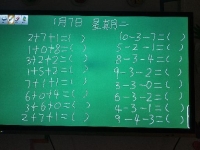 1月7日 星期一
2+7+1=( ) 6-3-7=( )
1+0+8=( ) 5-2-1=( )
3+2+2=( ) 8-3-4=( )
1+5+2=( ) 9-3-2=( )
7+1+1=( ) 3-3-0=( )
6+0+4=( ) 6-3-2=( )
3+6+0=( ) 4-3-1=( )
2+7+1=( ) 9-4-3=( )